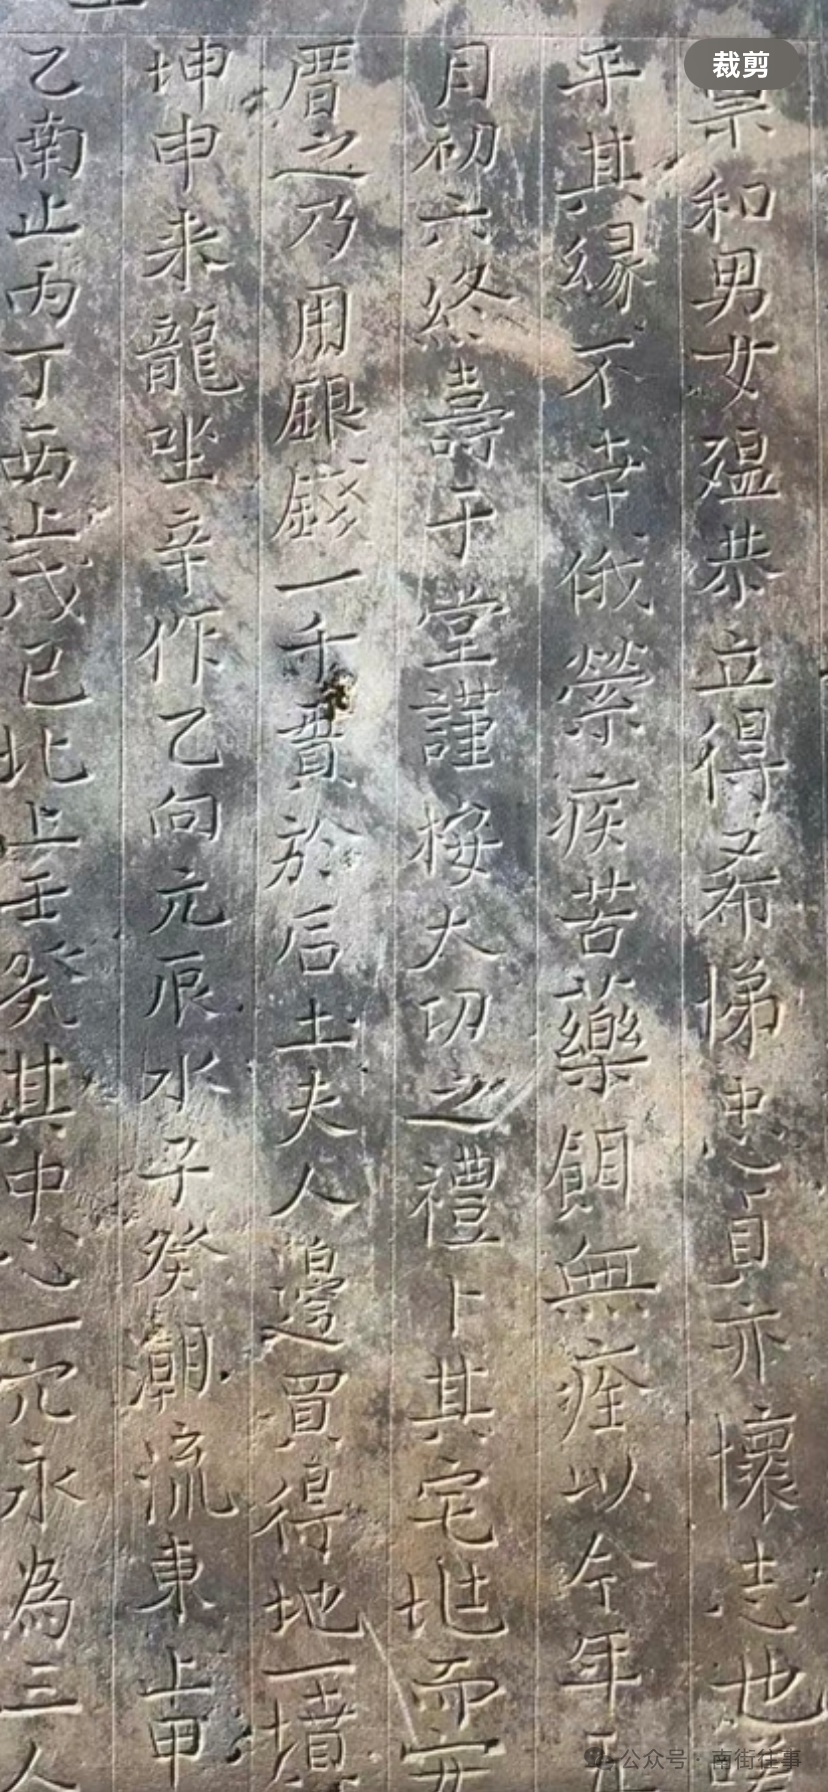 裁剪
和男女殟恭立得希悌忠貞亦懷志也
乎其緣不幸俄縈疾苦藥餌無痊以今年正
月初六終壽于堂謹按大切之禮卜其宅地而安
厝之乃用銀錢一千貫於后土夫人邊買得地一墳
坤申来龍坐辛作乙向元辰水子癸潮流東上甲
乙南止丙丁西上戊己北上壬癸其中心一穴永為三人
公众号·南街往事